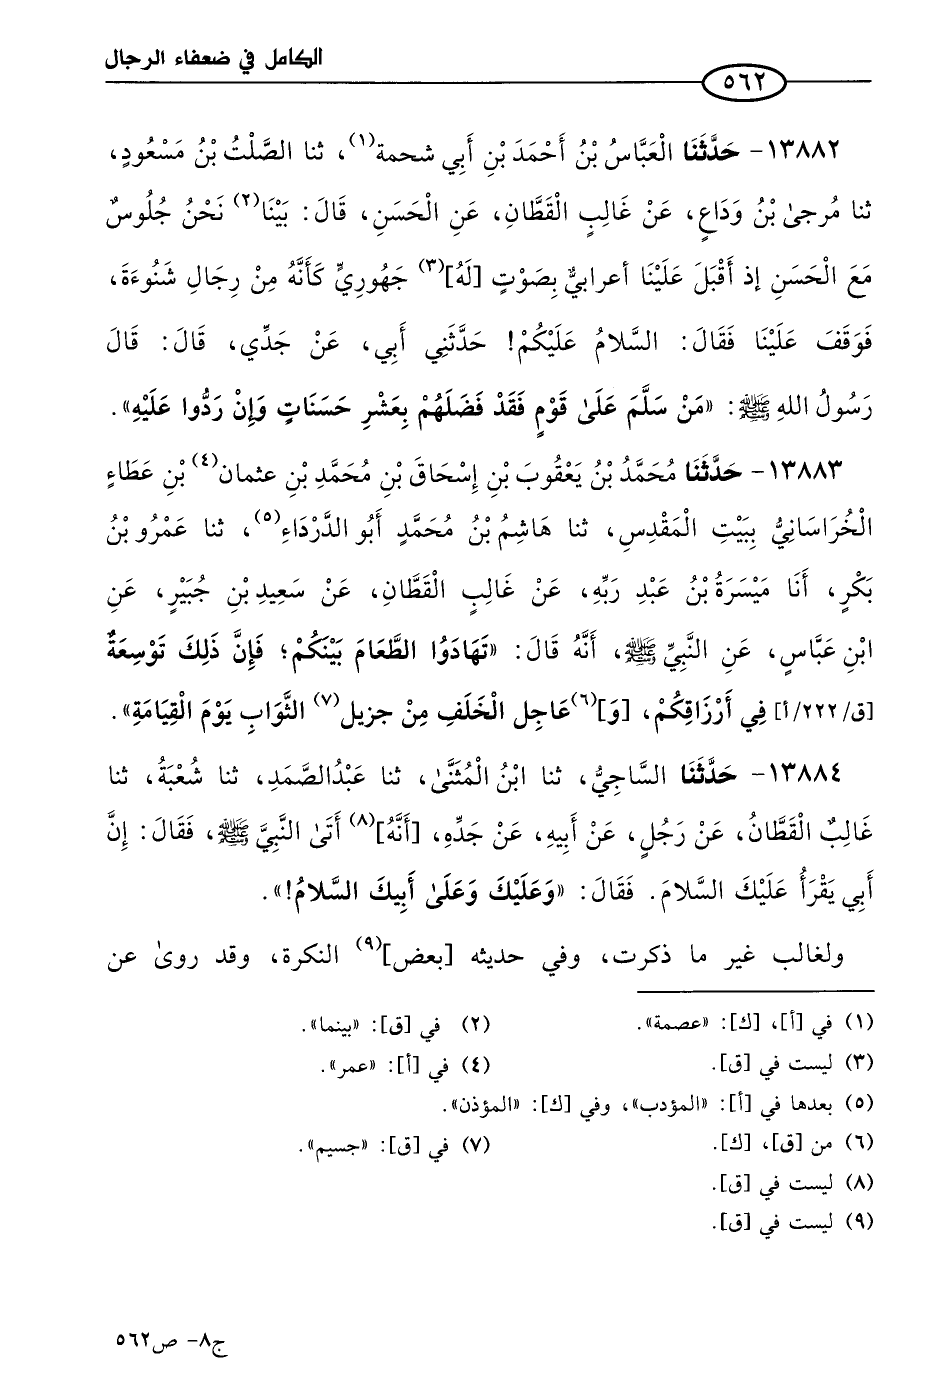 الكامل في ضعفاء الرجال
٥٦٢
١٣٨٨٢- حَدَّثَنَا الْعَبَّاسُ بْنُ أَحْمَدَ بْنِ أَبِي شحمة(١)، ثنا الصَّلْتُ بْنُ مَسْعُودٍ،
ثنا مُرجىٰ بْنُ وَدَاعٍ، عَنْ غَالِبٍ الْقَطَّانِ، عَنِ الْحَسَنِ، قَالَ: بَيْنَا(٢) نَحْنُ جُلُوسٌ
مَعَ الْحَسَنِ إذ أَقْبَلَ عَلَيْنَا أعرابيٌّ بِصَوْتٍ [لَهُ](٣) جَهُورِيٍّ كَأَنَّهُ مِنْ رِجَالِ شَنُوءَةَ،
فَوَقَفَ عَلَيْنَا فَقَالَ: السَّلامُ عَلَيْكُمْ! حَدَّثَنِي أَبِي، عَنْ جَدِّي، قَالَ: قَالَ
رَسُولُ اللهِ ﷺ: «مَنْ سَلَّمَ عَلَىٰ قَوْمٍ فَقَدْ فَضَلَهُمْ بِعَشْرِ حَسَنَاتٍ وَإِنْ رَدُّوا عَلَيْهِ».
١٣٨٨٣- حَدَّثَنَا مُحَمَّدُ بْنُ يَعْقُوبَ بْنِ إِسْحَاقَ بْنِ مُحَمَّدِ بْنِ عثمان(٤) بْنِ عَطَاءٍ
الْخُرَاسَانِيُّ بِبَيْتِ الْمَقْدِسِ، ثنا هَاشِمُ بْنُ مُحَمَّدٍ أَبُو الدَّرْدَاءِ(٥)، ثنا عَمْرُو بْنُ
بَكْرٍ، أَنَا مَيْسَرَةُ بْنُ عَبْدِ رَبِّهِ، عَنْ غَالِبٍ الْقَطَّانِ، عَنْ سَعِيدِ بْنِ جُبَيْرٍ، عَنِ
ابْنِ عَبَّاسٍ، عَنِ النَّبِيِّ ﷺ، أَنَّهُ قَالَ: «تَهَادَوُا الطَّعَامَ بَيْنَكُمْ؛ فَإِنَّ ذَلِكَ تَوْسِعَةٌ
[ق/٢٢٢/أ] فِي أَرْزَاقِكُمْ، [وَ](٦)عَاجِلِ الْخَلَفِ مِنْ جزيل(٧) الثَّوَابِ يَوْمَ الْقِيَامَةِ».
١٣٨٨٤- حَدَّثَنَا السَّاجِيُّ، ثنا ابْنُ الْمُثَنَّىٰ، ثنا عَبْدُ الصَّمَدِ، ثنا شُعْبَةُ، ثنا
غَالِبٌ الْقَطَّانُ، عَنْ رَجُلٍ، عَنْ أَبِيهِ، عَنْ جَدِّهِ، [أَنَّهُ](٨) أَتَىٰ النَّبِيَّ ﷺ، فَقَالَ: إِنَّ
أَبِي يَقْرَأُ عَلَيْكَ السَّلامَ. فَقَالَ: «وَعَلَيْكَ وَعَلَىٰ أَبِيكَ السَّلامُ!».
ولغالب غير ما ذكرت، وفي حديثه [بعض](٩) النكرة، وقد روىٰ عن
(١) في [أ]، [ك]: «عصمة». (٢) في [ق]: «بينما».
(٣) ليست في [ق]. (٤) في [أ]: «عمر».
(٥) بعدها في [أ]: «المؤدب»، وفي [ك]: «المؤذن».
(٦) من [ق]، [ك]. (٧) في [ق]: «جسيم».
(٨) ليست في [ق].
(٩) ليست في [ق].
ج٨- ص٥٦٢